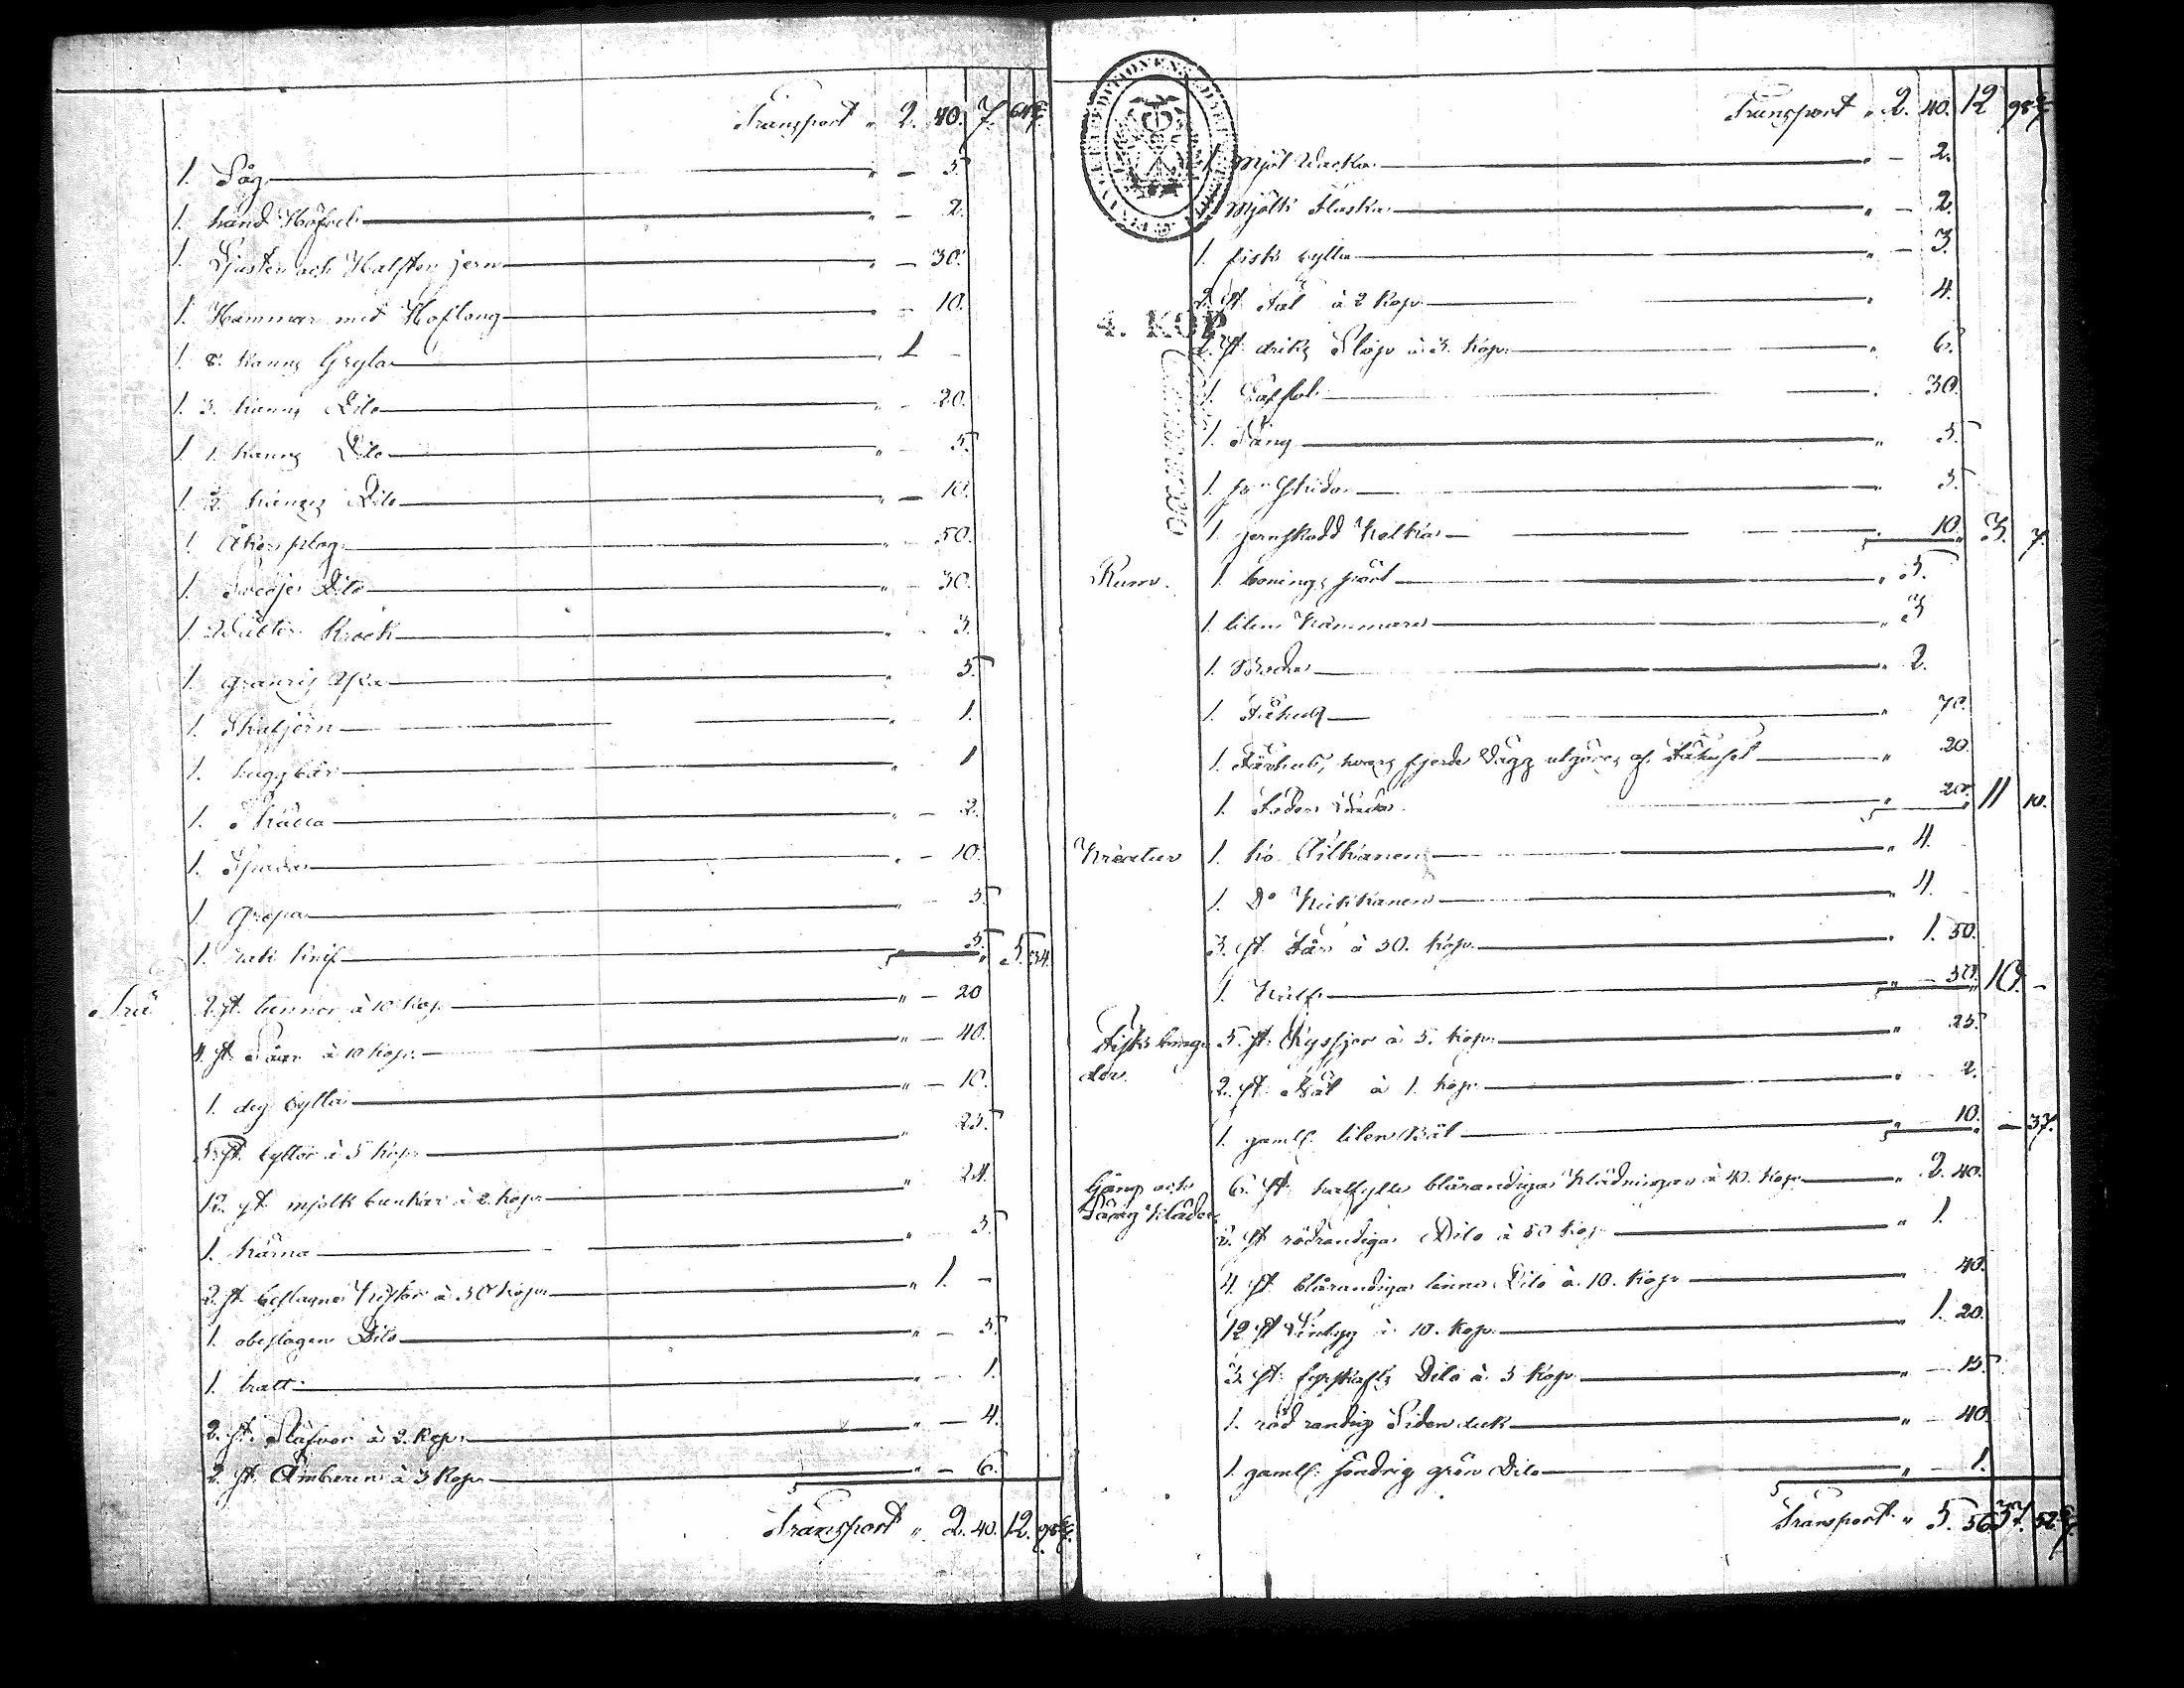 Transport " 2. 40. 7. 64 4/7
1. Såg " — 5
1. hand Höfvel " — 2.
1. Ljuster och Halster jern " — 30.
1. Hammar med Hoftong " — 10.
1. 8. kanns Gryta " 1 —
1. 3. kanns Dito " — 20.
1. 1. kanns Dito " — 5
1. 2. kanns Dito " — 10.
1. Åker plog " — 50.
1. Svedje Dito " — 30.
1. Krock " — 3.
1. granris " 5.
1. Skafjern " 1.
1. huggkar " 1
1. Skälla " — 2.
1. Spada " — 10.
1. Grepa " — 5
1. rak knif " 5. 5. 34.
Trä 2. st. tunnor à 10 Kop. " — 20
4. st. Såar à 10 Kop. " — 40.
1. deg bytta " — 10.
5. st. byttor à 5 Kop. " 25
12. st. mjölk bunkar à 2. Kop. " 24.
1. kärna " 5
2. st. beslagne Kistor à 50 Kop. " 1. —
1. obeslagen Dito " — 5.
1. tratt " — 1.
2. st. à 2. Kop. " — 4.
2. st. Ämbaren à 3 Kop. " — 6.
Transport " 2. 40. 12. 98 4/7
Transport " 2. 40. 12 98 4/7
1. Mjöl Wacka " — 2.
1. Mjölk Flaska " — 2.
1. fisk bytta " — 3.
2. st. Fat à 2 Kop. " 4.
4. KOP
2. st. driks Stop à 3. Kop. " 6.
1. " 30.
1. Säng " 5.
1. pr Skidor " 5.
1. jernskodd Kälka " 10. 3. 7.
Rum. 1. bonings pört " 5.
1. liten Kammare " 3
1. Boda " 2.
1. Fähus " 70.
1. Fårhus, hvars fjerde Vägg utgöres af Fähuset " 20.
1. Foder Lada " 20. 11 10.
Kreatur 1. ko " 4. —
1. Do " 4. —
3. st. Får à 50. Kop. " 1. 50.
1. Kalf " — 50. 10. —
Fisk bragder. 5. st. Ryssjor à 5. Kop. " 25.
2. st. Nät à 1. Kop. " 2.
1. gaml. liten Båt " 10. — 37.
Gång och Säng kläder 6. st. halfylle blårandiga Klädningar à 40. Kop. " 2. 40.
2. st rödrandiga Dito à 50 Kop. " 1.
4 st blårandiga linne Dito à 10. Kop. " 40.
12 st à 10. Kop. " 1. 20.
3. st. Dito à 5 Kop. " — 15.
1. röd randig Siden duk " 40.
1. gaml. söndrig grön Dito " 1.
Transport " 5. 56 37. 52 4/7